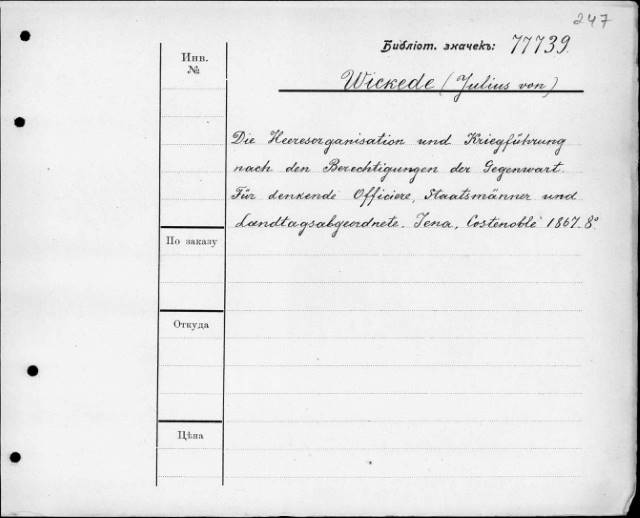 247
Библіот. значекъ: 77739.
Инв.
№
Wickede (Julius von)
Die Heeresorganisation und Kriegführung
nach den Berechtigungen der Gegenwart.
Für denkende Officiere, Staatsmänner und
Landtagsabgeordnete. Jena, Costenoble 1867. 8°
По заказу
Откуда
Цѣна